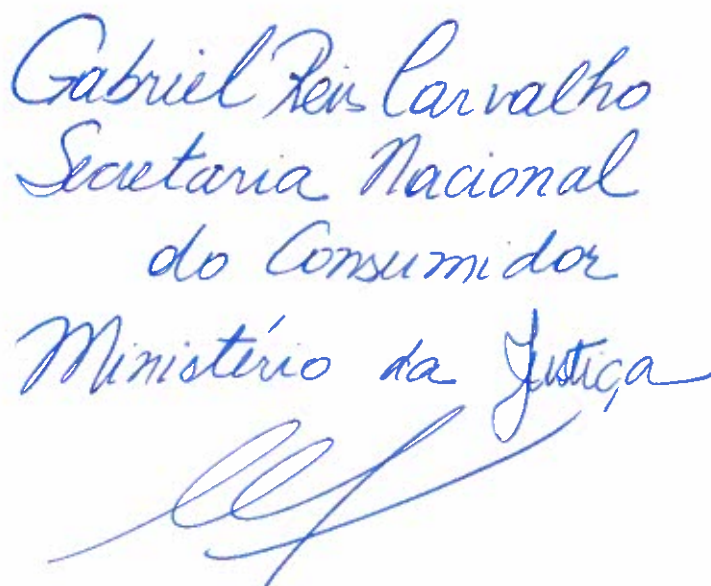 Gabriel Reis Carvalho
Secretaria Nacional
do Consumidor
Ministério da Justiça